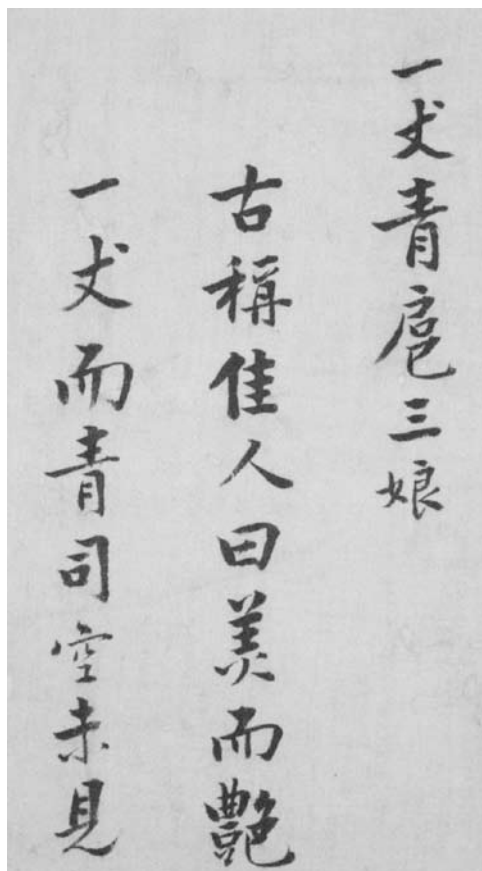 一丈青扈三娘
古稱佳人曰美而艷
一丈而青司空未見